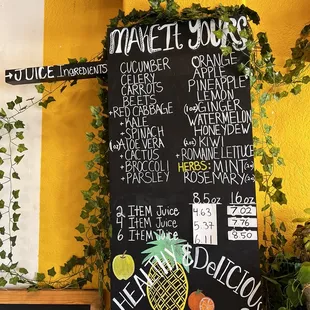 MAKE It YOURS
→ JUICE INGREDIENTS
CUCUMBER
CELERY
CARROTS
BEETS
+RED CABBAGE
+KALE
+SPINACH
ALOE VERA
+CACTUS
+BROCCOLI
+PARSLEY
ORANGE
APPLE
PINEAPPLE
LEMON
GINGER
WATERMELON
HONEYDEW
KIWI
+ROMAINE LETTUCE
HERBS: MINT
ROSEMARY
8.5oz 16oz
2 ITEM JUICE 4.63 7.02
4 ITEM JUICE 5.37 7.76
6 ITEM JUICE 6.11 8.50
HEALTHY & DELICIOUS